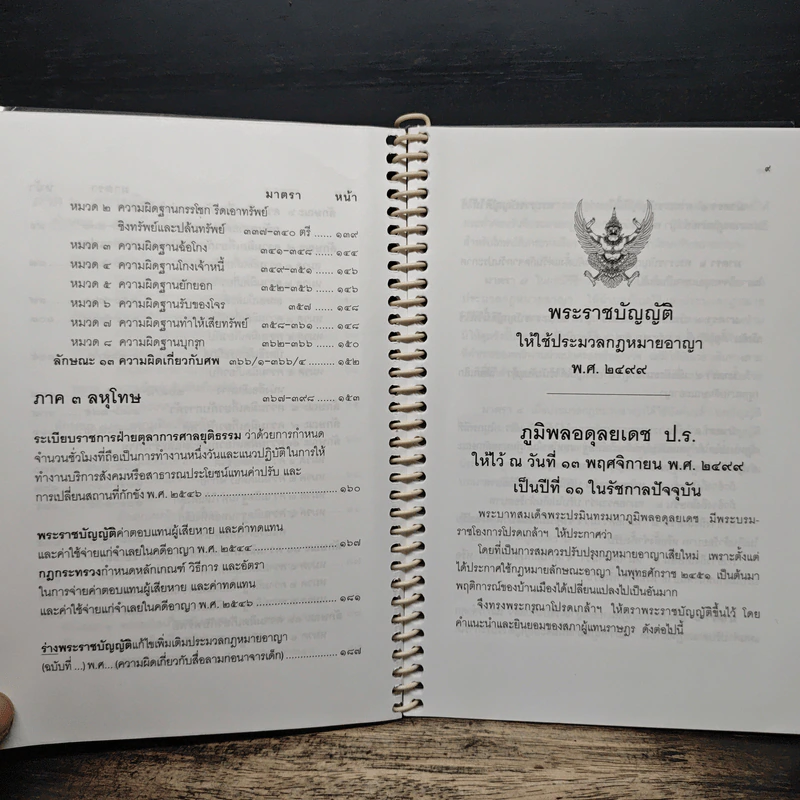 มาตรา หน้า
หมวด ๒ ความผิดฐานกรรโชก รีดเอาทรัพย์
ชิงทรัพย์และปล้นทรัพย์ ๓๓๗-๓๔๐ ตรี ...... ๑๓๙
หมวด ๓ ความผิดฐานฉ้อโกง ๓๔๑-๓๔๘ ...... ๑๔๔
หมวด ๔ ความผิดฐานโกงเจ้าหนี้ ๓๔๙-๓๕๑ ...... ๑๔๖
หมวด ๕ ความผิดฐานยักยอก ๓๕๒-๓๕๖ ...... ๑๔๖
หมวด ๖ ความผิดฐานรับของโจร ๓๕๗ ...... ๑๔๘
หมวด ๗ ความผิดฐานทำให้เสียทรัพย์ ๓๕๘-๓๖๑ ...... ๑๔๘
หมวด ๘ ความผิดฐานบุกรุก ๓๖๒-๓๖๖ ...... ๑๕๐
ลักษณะ ๑๓ ความผิดเกี่ยวกับศพ ๓๖๖/๑-๓๖๖/๔ ......... ๑๕๒
ภาค ๓ ลหุโทษ ๓๖๗-๓๙๘ ...... ๑๕๓
ระเบียบราชการฝ่ายตุลาการศาลยุติธรรม ว่าด้วยการกำหนด
จำนวนชั่วโมงที่ถือเป็นการทำงานหนึ่งวันและแนวปฏิบัติในการให้
ทำงานบริการสังคมหรือสาธารณประโยชน์แทนค่าปรับ และ
การเปลี่ยนสถานที่กักขัง พ.ศ. ๒๕๔๖ ...................................... ๑๖๐
พระราชบัญญัติค่าตอบแทนผู้เสียหาย และค่าทดแทน
และค่าใช้จ่ายแก่จำเลยในคดีอาญา พ.ศ. ๒๕๔๔ ...................... ๑๖๗
กฎกระทรวงกำหนดหลักเกณฑ์ วิธีการ และอัตรา
ในการจ่ายค่าตอบแทนผู้เสียหาย และค่าทดแทน
และค่าใช้จ่ายแก่จำเลยในคดีอาญา พ.ศ. ๒๕๔๖ ...................... ๑๘๑
ร่างพระราชบัญญัติแก้ไขเพิ่มเติมประมวลกฎหมายอาญา
(ฉบับที่ ...) พ.ศ... (ความผิดเกี่ยวกับสื่อลามกอนาจารเด็ก) ................. ๑๘๗
๙
พระราชบัญญัติ
ให้ใช้ประมวลกฎหมายอาญา
พ.ศ. ๒๔๙๙
ภูมิพลอดุลยเดช ป.ร.
ให้ไว้ ณ วันที่ ๑๓ พฤศจิกายน พ.ศ. ๒๔๙๙
เป็นปีที่ ๑๑ ในรัชกาลปัจจุบัน
พระบาทสมเด็จพระปรมินทรมหาภูมิพลอดุลยเดช มีพระบรม-
ราชโองการโปรดเกล้าฯ ให้ประกาศว่า
โดยที่เป็นการสมควรปรับปรุงกฎหมายอาญาเสียใหม่ เพราะตั้งแต่
ได้ประกาศใช้กฎหมายลักษณะอาญา ในพุทธศักราช ๒๔๕๑ เป็นต้นมา
พฤติการณ์ของบ้านเมืองได้เปลี่ยนแปลงไปเป็นอันมาก
จึงทรงพระกรุณาโปรดเกล้าฯ ให้ตราพระราชบัญญัติขึ้นไว้ โดย
คำแนะนำและยินยอมของสภาผู้แทนราษฎร ดังต่อไปนี้